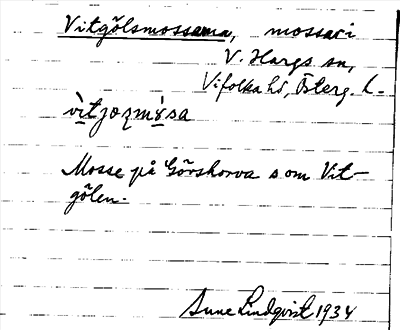 Vitgölsmossarna, mossar i
V. Hargs sn,
Vifolka hd, Österg. l.
vìtjoꞎmɤ̀sa
Mosse på Görskorva som Vit-
gölen.
Sune Lindqvist 1934